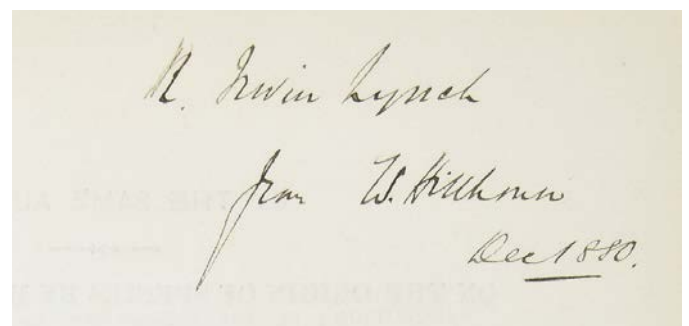 R. Irwin Lynch
from W. Hillhouse
Dec 1880.